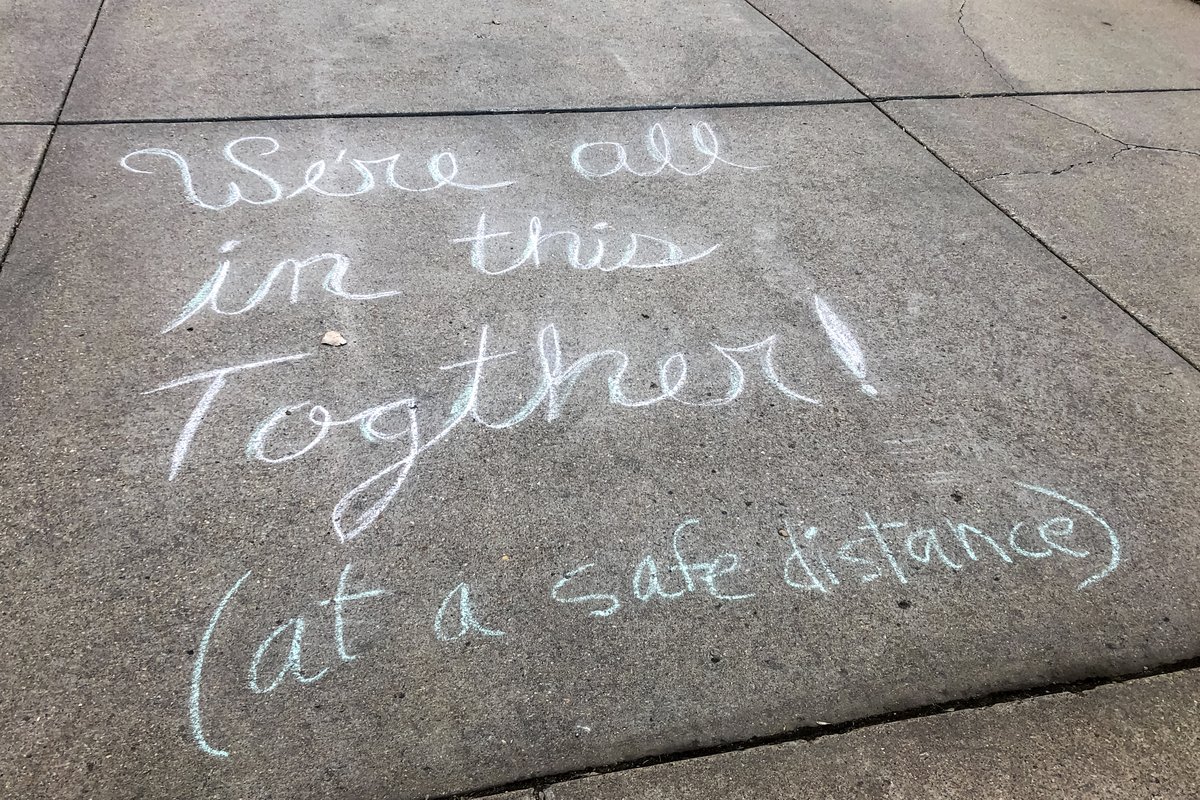 We're all
in this
Togther!
(at a safe distance)